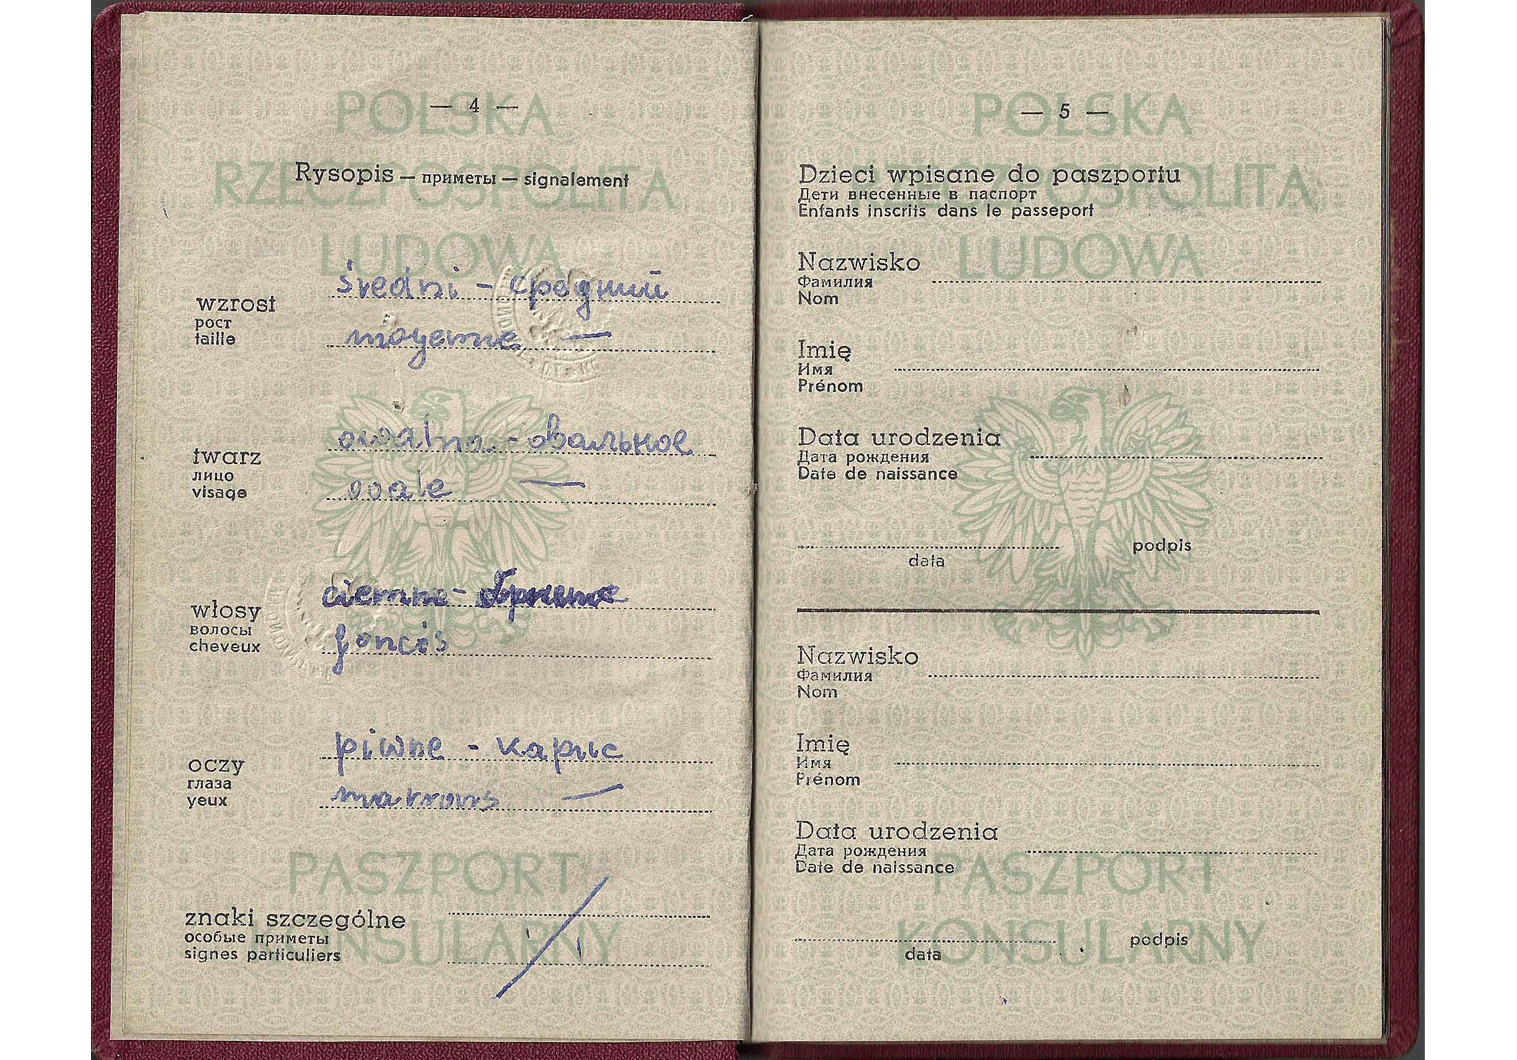 — 4 —
Rysopis — приметы — signalement
wzrost
рост
taille
średni - средний
moyenne —
twarz
лицо
visage
owalna - овальное
ovale —
włosy
волосы
cheveux
ciemne -
foncés
oczy
глаза
yeux
piwne - карие
marrons —
znaki szczególne
особые приметы
signes particuliers
POLSKA
RZECZPOSPOLITA
LUDOWA
PASZPORT
KONSULARNY
— 5 —
Dzieci wpisane do paszportu
Дети внесенные в паспорт
Enfants inscrits dans le passeport
Nazwisko
Фамилия
Nom
Imię
Имя
Prénom
Data urodzenia
Дата рождения
Date de naissance
data podpis
Nazwisko
Фамилия
Nom
Imię
Имя
Prénom
Data urodzenia
Дата рождения
Date de naissance
data podpis
POLSKA
RZECZPOSPOLITA
LUDOWA
PASZPORT
KONSULARNY